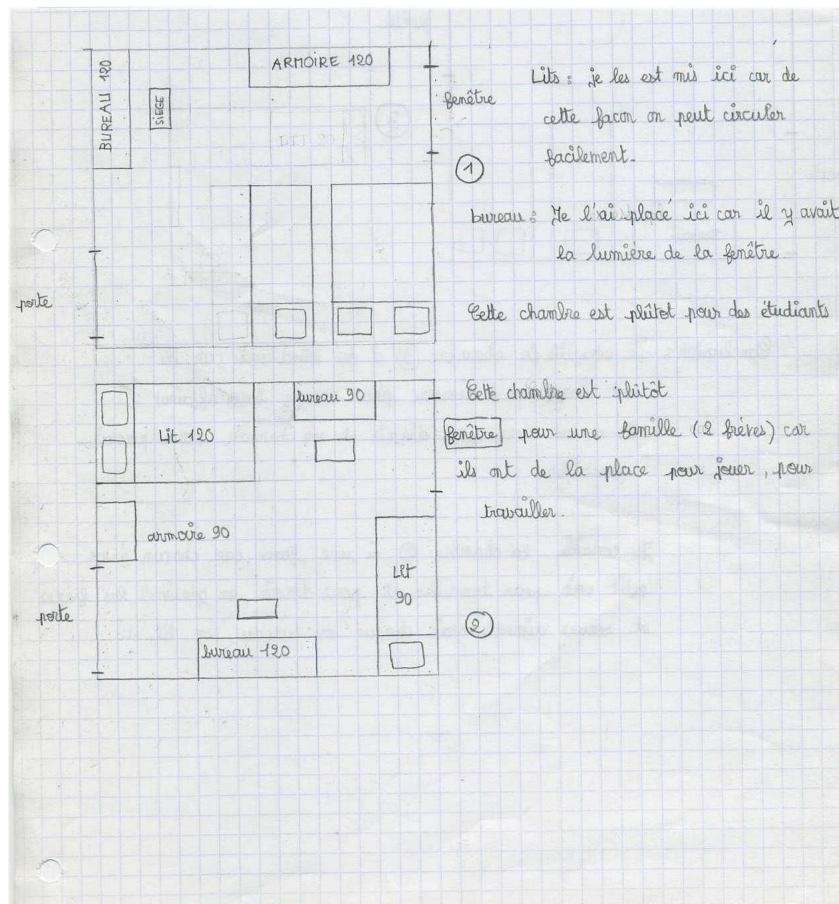 BUREAU 120
SIEGE
ARMOIRE 120
fenêtre
1
porte
Lits : je les est mis ici car de
cette facon on peut circuler
facilement.
bureau : Je l'ai placé ici car il y avait
la lumière de la fenêtre
Cette chambre est plûtot pour des étudiants
Lit 120
bureau 90
armoire 90
porte
bureau 120
Lit
90
2
Cette chambre est plûtot
fenêtre pour une famille (2 frères) car
ils ont de la place pour jouer, pour
travailler.